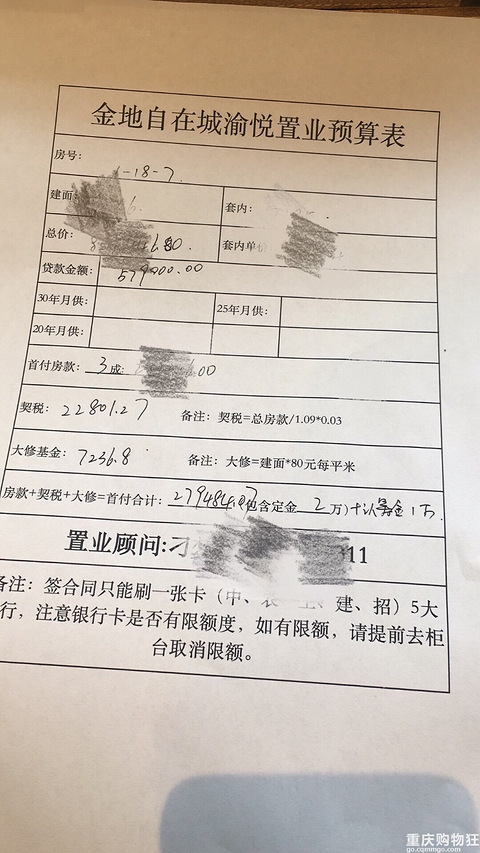 金地自在城渝悦置业预算表
房号: -18-7
建面: 6. 套内:
总价: 6.80. 套内单价
贷款金额: 579000.00
30年月供: 25年月供:
20年月供:
首付房款: 3成: .00
契税: 22801.27 备注: 契税=总房款/1.09*0.03
大修基金: 7236.8 备注: 大修=建面*80元每平米
房款+契税+大修=首付合计: 包含定金 2万)+认筹金1万
置业顾问:刁 11
备注: 签合同只能刷一张卡(中、农 工、建、招)5大
行，注意银行卡是否有限额度，如有限额，请提前去柜
台取消限额。
重庆购物狂
go.cqmmgo.com